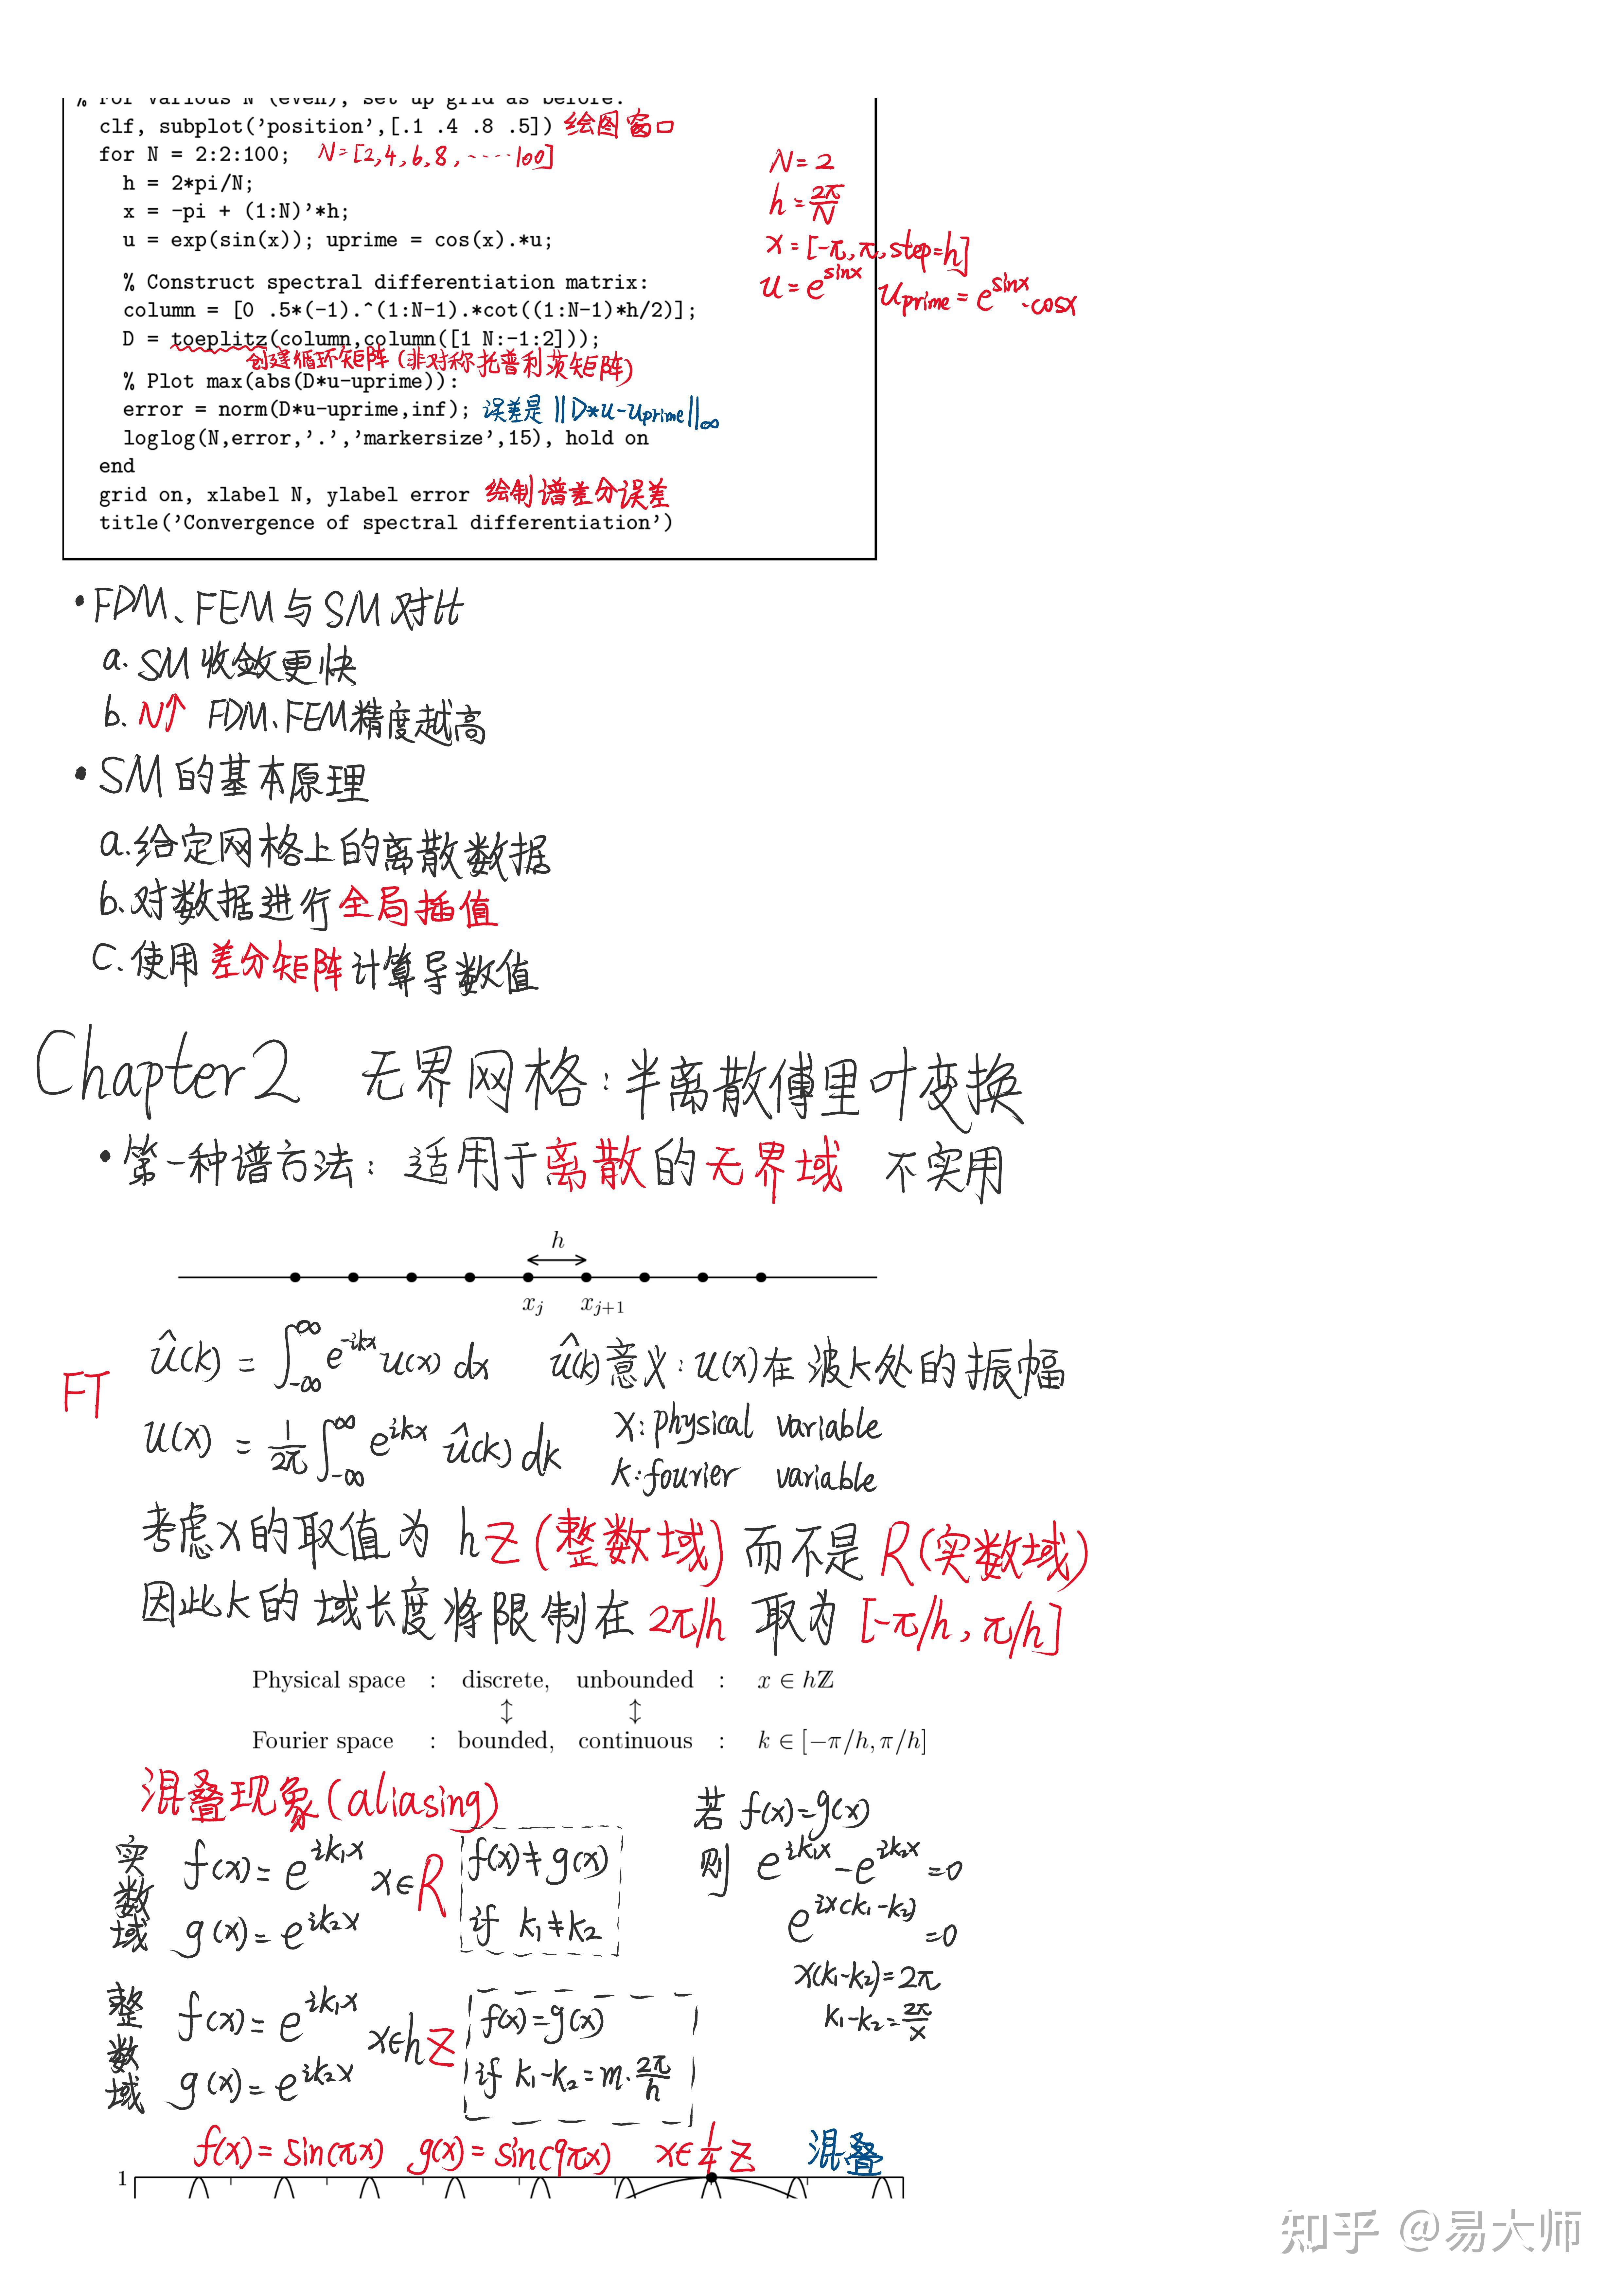 % For various N (even), set up grid as before:
clf, subplot('position',[.1 .4 .8 .5]) 绘图窗口
for N = 2:2:100; N=[2,4,6,8,·····100]
h = 2*pi/N;
x = -pi + (1:N)'*h;
u = exp(sin(x)); uprime = cos(x).*u;
N=2
h=2π/N
x=[-π,π,step=h]
u=e^sinx uprime=e^sinx·cosx
% Construct spectral differentiation matrix:
column = [0 .5*(-1).^(1:N-1).*cot((1:N-1)*h/2)];
D = toeplitz(column,column([1 N:-1:2]));
创建循环矩阵(非对称托普利茨矩阵)
% Plot max(abs(D*u-uprime)):
error = norm(D*u-uprime,inf); 误差是||D*u-uprime||∞
loglog(N,error,'.','markersize',15), hold on
end
grid on, xlabel N, ylabel error 绘制谱差分误差
title('Convergence of spectral differentiation')
•FDM、FEM与SM对比
a.SM收敛更快
b.N↑ FDM、FEM精度越高
•SM的基本原理
a.给定网格上的离散数据
b.对数据进行全局插值
C.使用差分矩阵计算导数值
Chapter2 无界网格:半离散傅里叶变换
•第一种谱方法:适用于离散的无界域 不实用
h
x_j x_{j+1}
FT
û(k)=∫_{-∞}^{∞}e^{-ikx}u(x)dx û(k)意义:u(x)在波k处的振幅
u(x)=1/2π∫_{-∞}^{∞}e^{ikx}û(k)dk
x:physical variable
k:fourier variable
考虑x的取值为hZ(整数域)而不是R(实数域)
因此k的域长度将限制在2π/h 取为[-π/h,π/h]
Physical space : discrete, unbounded : x ∈ hℤ
↕ ↕
Fourier space : bounded, continuous : k ∈ [−π/h, π/h]
混叠现象(aliasing)
实数域 f(x)=e^{ik₁x} x∈R f(x)≠g(x)
g(x)=e^{ik₂x} if k₁≠k₂
若f(x)=g(x)
则 e^{ik₁x}-e^{ik₂x}=0
e^{ix(k₁-k₂)}=0
x(k₁-k₂)=2π
k₁-k₂=2π/x
整数域 f(x)=e^{ik₁x} x∈hZ f(x)=g(x)
g(x)=e^{ik₂x} if k₁-k₂=m·2π/h
f(x)=sin(πx) g(x)=sin(9πx) x∈1/4Z 混叠
1
知乎 @易大师